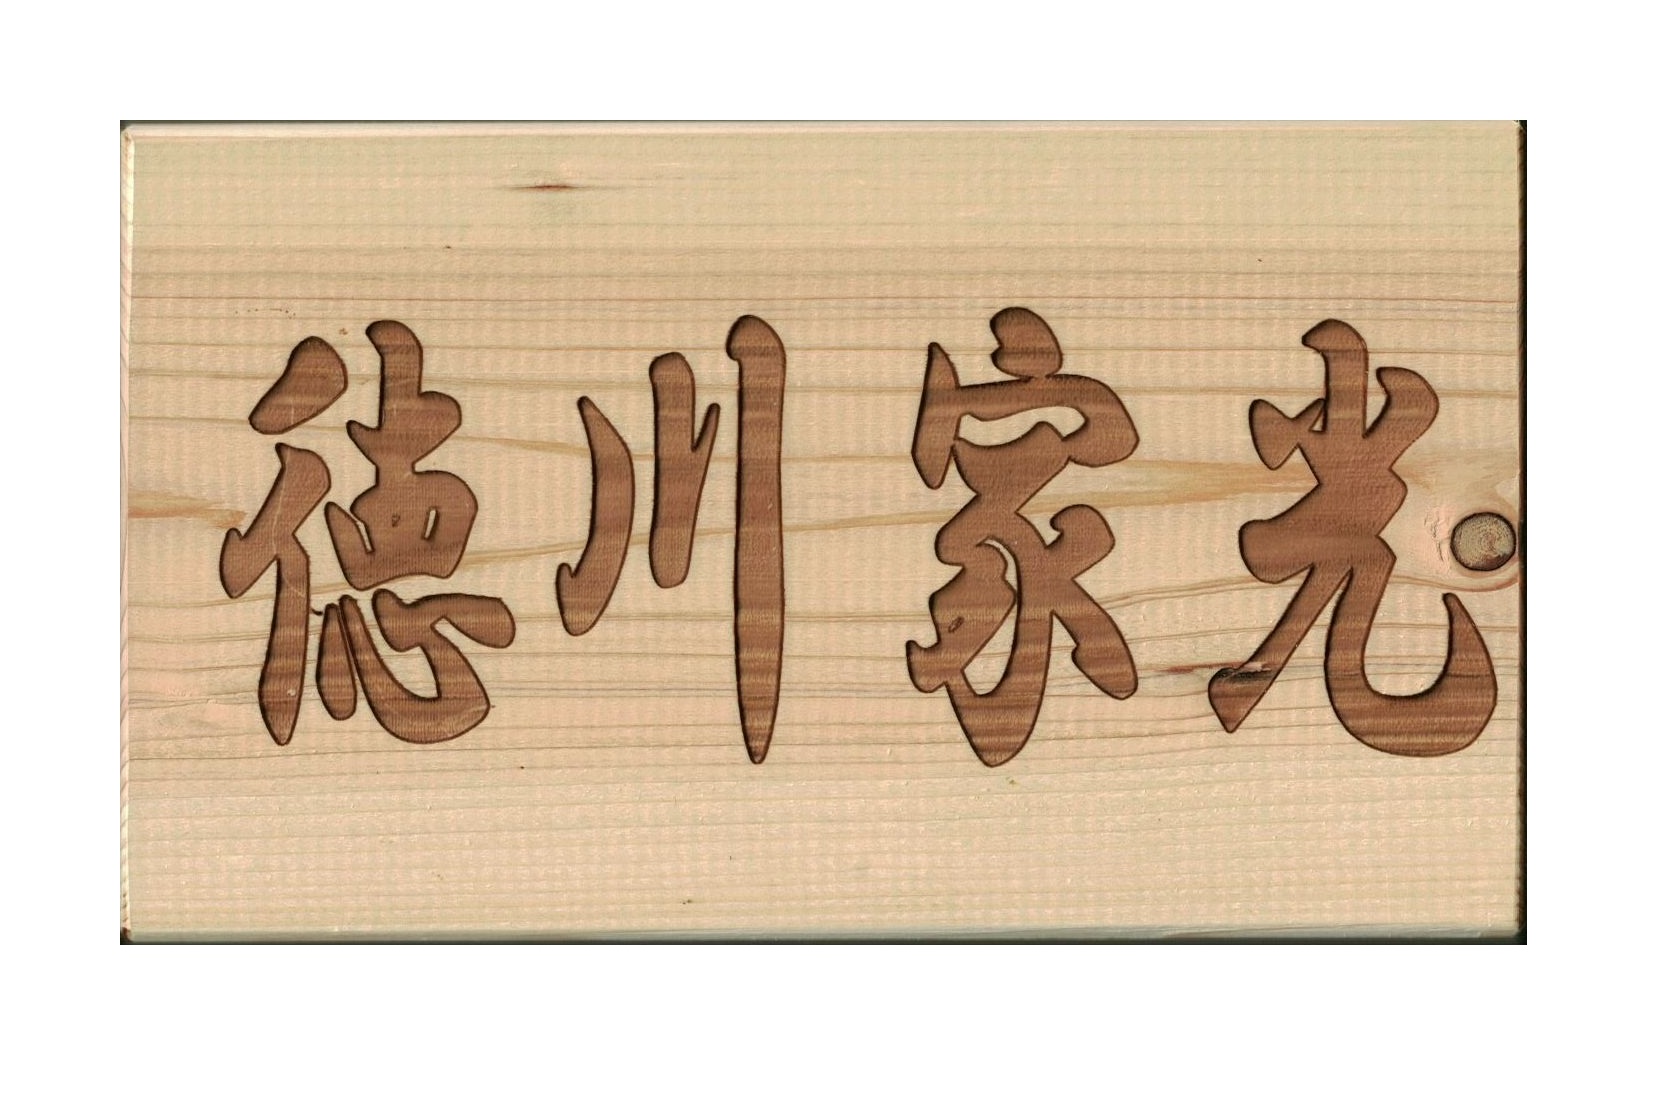 徳川家光